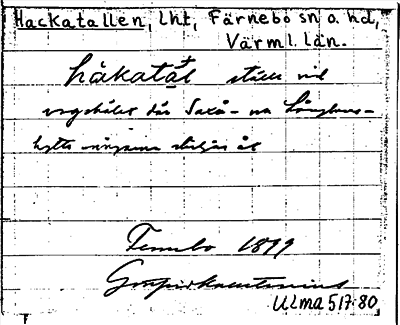 Hackatallen, lht, Färnebo sn o. hd,
Värml. län.
håkatát ställe vid
vägskälet där Saxå- na Långbans-
hytte vägarna skiljas åt
Fernebo 1899
Ulma 517:80